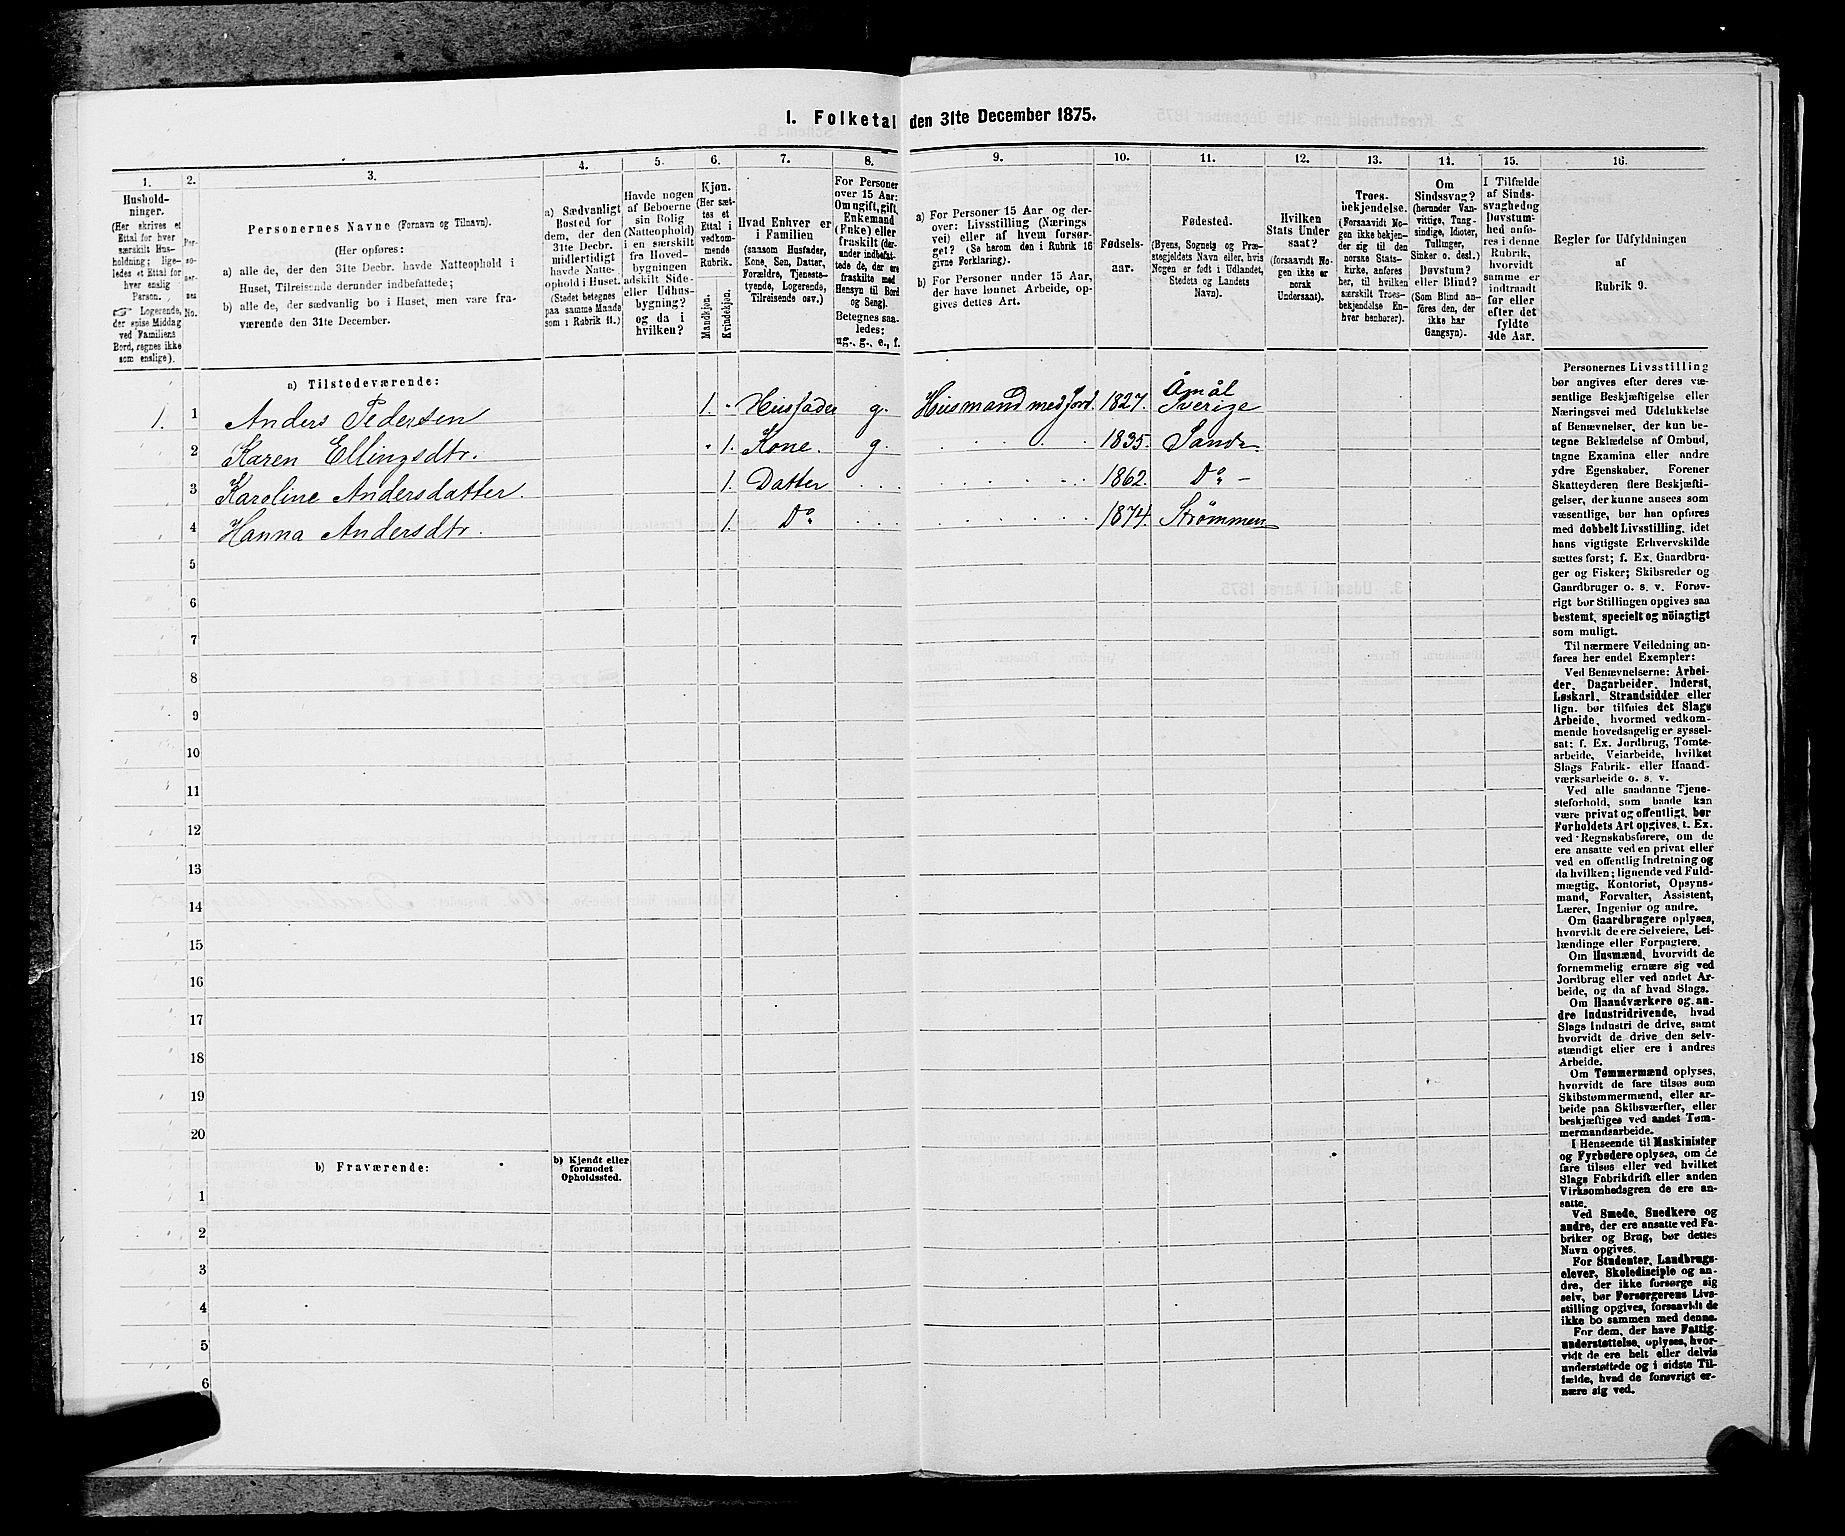 1. Folketal den 31te December 1875.
1.
2.
3.
4.
5.
6.
7.
8.
9.
10.
11.
12.
13.
14.
15.
16.
Hushold-
ninger.
(Her skrives et
Ettal for hver
særskilt Hus-
holdning; lige-
ledes et Ettal for
hver enslig
Person.
☞ Logerende,
der spise Middag
ved Familiens
Bord, regnes ikke
som enslige).
Per-
so-
nes
No.
Personernes Navne (Fornavn og Tilnavn).
(Her opføres:
a) alle de, der den 31te Decbr. havde Natteophold i
Huset, Tilreisende derunder indbefattede;
b) alle de, der sædvanlig bo i Huset, men vare fra-
værende den 31te December.
a) Sædvanligt
Bosted for
dem, der den
31te Decbr.
midlertidigt
havde Natte-
ophold i Huset.
(Stedet betegnes
paa samme Maade
som i Rubrik 11.)
Havde nogen
af Beboerne
sin Bolig
(Natteophold)
i en særskilt
fra Hoved-
bygningen
adskilt Side-
eller Udhus-
bygning?
og da i
hvilken?
Kjøn.
(Her sæt-
tes et
Ettal i
vedkom-
mende
Rubrik.
Mandkjøn.
Kvindekjøn.
Hvad Enhver er
i Familien
(saasom Husfader,
Kone, Søn, Datter,
Forældre, Tjeneste-
tyende, Logerende,
Tilreisende osv.)
For Personer
over 15 Aar:
Om ugift, gift,
Enkemand
(Enke) eller
fraskilt (der-
under indbefat-
tede de, der ere
fraskilte med
Hensyn til Bord
og Seng).
Betegnes saa-
ledes:
ug., g., e., f.
a) For Personer 15 Aar og der-
over: Livsstilling (Nærings
vei) eller af hvem forsør-
get? (Se herom den i Rubrik 16
givne Forklaring).
b) For Personer under 15 Aar,
der have lønnet Arbeide, op-
gives dettes Art.
Fødsels-
aar.
Fødested.
(Byens, Sognets og Præ-
stegjeldets Navn eller, hvis
Nogen er født i Udlandet,
Stedets og Landets
Navn).
Hvilken
Stats Under
saat?
(forsaavidt No-
gen ikke er
norsk
Undersaat).
Troes-
bekjendelse.
(Forsaavidt No-
gen ikke bekjen-
der sig til den
norske Stats-
kirke, anføres
her, til hvilken
særskilt Troes-
bekjendelse En-
hver henhører).
Om
Sindssvag?
(herunder Van-
vittige, Tung-
sindige, Idioter,
Tullinger,
Sinker o. desl.)
Døvstum?
eller Blind?
(Som Blind an-
føres den, der
ikke har
Gangsyn).
I Tilfælde
af Sinds-
svaghed og
Døvstum-
hed anfø-
res i denne
Rubrik,
hvorvidt
samme er
indtraadt
før eller
efter det
fyldte
4de Aar.
Regler for Udfyldningen
af
Rubrik 9.
a) Tilstedeværende:
1. 1 Anders Pedersen 1. - Husfader g. Husmand med Jord. 1827. Åmål Sverige
2 Karen Ellingsdtr. - 1. Kone. g. 1835. Sande
3 Karoline Andersdatter. 1. Datter 1862. Do -
4 Hanna Andersdtr. 1. Do 1874. Strømmen
5
6
7
8
9
10
11
12
13
14
15
16
17
18
19
20
b) Fraværende:
b) Kjendt eller
formodet
Opholdssted.
1
2
3
4
5
6
Personernes Livsstilling
bør angives efter deres væ-
sentlige Beskjæftigelse eller
Næringsvei med Udelukkelse
af Benævnelser, der kun be-
tegne Beklædelse af Ombud,
tagne Examina eller andre
ydre Egenskaber. Forener
Skatteyderen flere Beskjæfti-
gelser, der kunne ansees som
væsentlige, bør han opføres
med dobbelt Livsstilling, idet
hans vigtigste Erhvervskilde
sættes først; f. Ex. Gaardbru-
ger og Fisker; Skibsreder og
Gaardbruger o. s. v. Forøv-
rigt bør Stillingen opgives saa
bestemt, specielt og nöiagtigt
som muligt.
Til nærmere Veiledning an-
føres her endel Exempler:
Ved Benævnelserne: Arbei-
der, Dagarbeider, Inderst,
Løskarl, Strandsidder eller
lign. bør tilføies det Slags
Arbeide, hvormed vedkom-
mende hovedsagelig er syssel-
sat; f. Ex. Jordbrug, Tomte-
arbeide, Veiarbeide, hvilket
Slags Fabrik- eller Haand-
værksarbeide o. s. v.
Ved alle saadanne Tjene-
steforhold, som baade kan
være privat og offentligt, bør
Forholdets Art opgives, t. Ex.
ved Regnskabsførere, om de
ere ansatte ved en privat eller
ved en offentlig Indretning og
da hvilken; lignende ved Fuld-
mægtig, Kontorist, Opsyns-
mand, Forvalter, Assistent,
Lærer, Ingeniør og andre.
Om Gaardbrugere oplyses,
hvorvidt de ere Selveiere, Lei-
lændinge eller Forpagtere.
Om Husmænd, hvorvidt de
fornemmelig ernære sig ved
Jordbrug eller ved andet Ar-
beide, og da af hvad Slags.
Om Haandværkere og an-
dre Industridrivende, hvad
Slags Industri de drive, samt
hvorvidt de drive den selv-
stændigt eller ere i andres
Arbeide.
Om Tømmermænd oplyses,
hvorvidt de fare tilsøs som
Skibstømmermænd, eller ar-
beide paa Skibsværfter, eller
beskjæftiges ved andet Tøm-
mermandsarbeide.
I Henseende til Maskinister
og Fyrbødere oplyses, om de
fare tilsøs eller ved hvilket
Slags Fabrikdrift eller anden
Virksomhedsgren de ere an-
satte.
Ved Smede, Snedkere og
andre, der ere ansatte ved Fa-
briker og Brug, bør dettes
Navn opgives.
For Studenter, Landbrugs-
elever, Skoledisciple og an-
dre, der ikke forsørge sig
selv, bør Forsørgerens Livs-
stilling opgives, forsaavidt de
ikke bo sammen med denne.
For dem, der have Fattig-
understøttelse, oplyses, hvor-
vidt de ere helt eller delvis
understøttede og i sidste Til-
fælde, hvad de forøvrigt er-
nære sig ved.